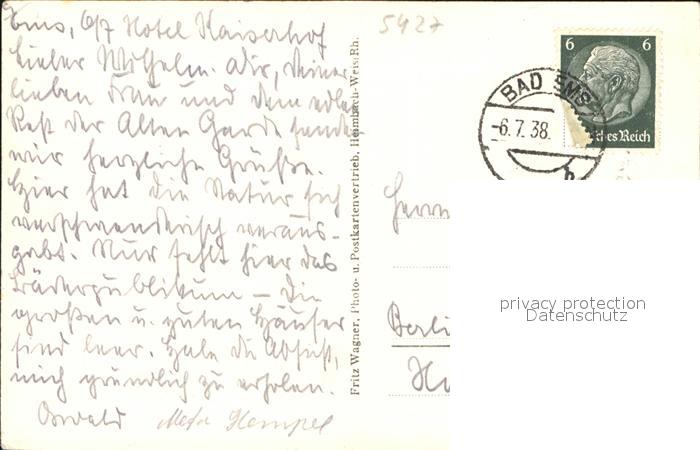 Ems, 6/7 Hotel Kaiserhof
Lieber Wilhelm. Dir, Deiner
lieben Frau und dem edlen
Rest der Alten Garde senden
wir herzliche Grüße.
Hier hat die Natur sich
verschwenderisch veraus-
gabt. Nur fehlt hier das
Bäderpublikum — die
großen u. guten Häuser
sind leer. Habe die Absicht,
mich gründlich zu erholen.
Oswald Meta Hempel
Fritz Wagner, Photo- u. Postkartenvertrieb, Heimbach-Weis/Rh.
5427
6 6
Deutsches Reich
BAD EMS
-6.7.38.
b
Herrn
Berli
privacy protection
Datenschutz